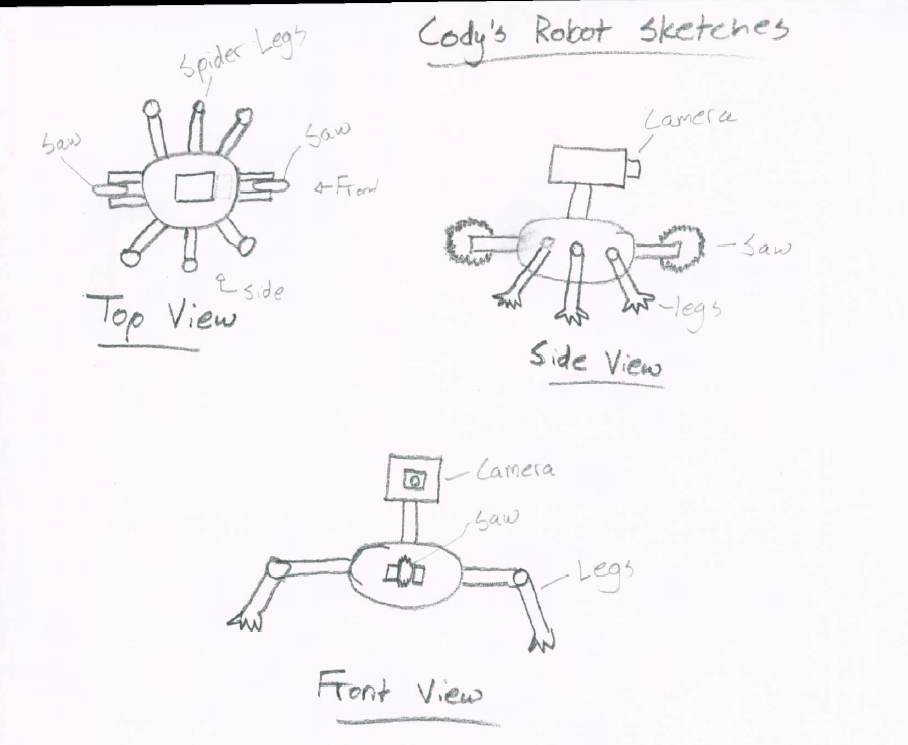 Cody's Robot Sketches
Spider Legs
Saw
Saw
←Front
Side
Top View
Camera
Saw
legs
Side View
Camera
Saw
Legs
Front View